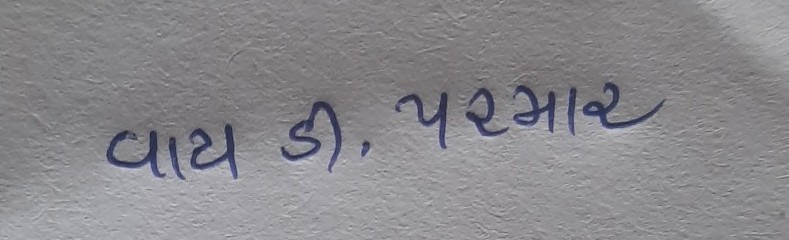 વાય ડી. પરમાર